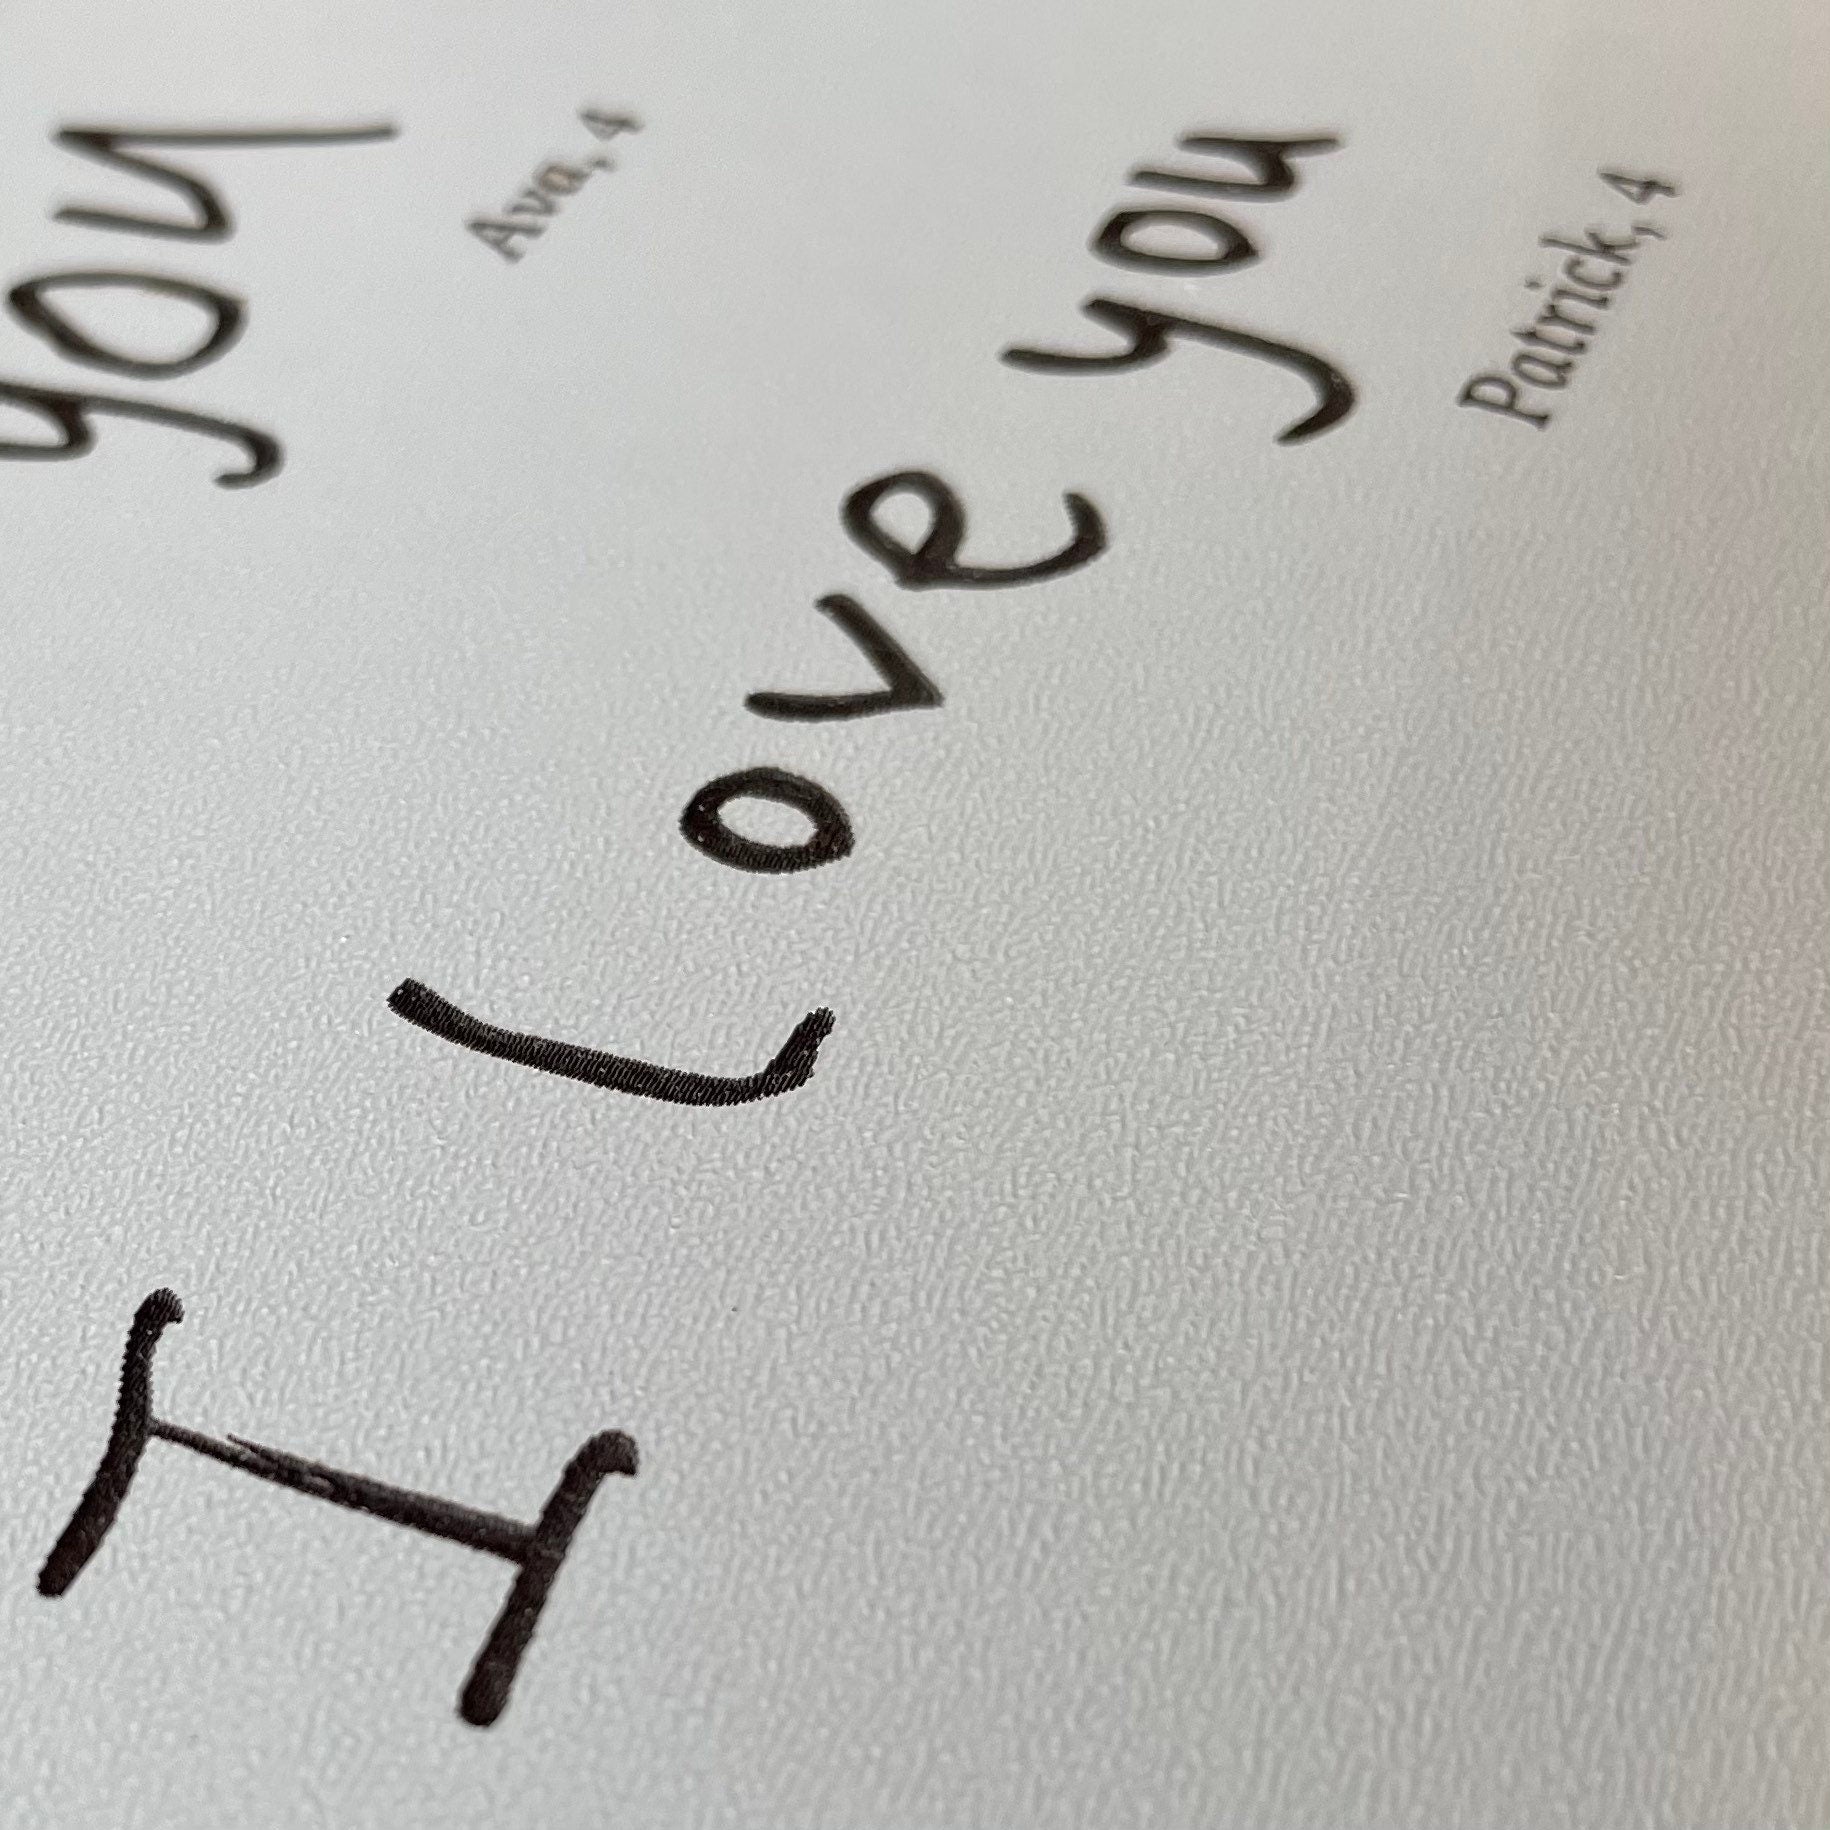 you
Ava, 4
I Love you
Patrick, 4